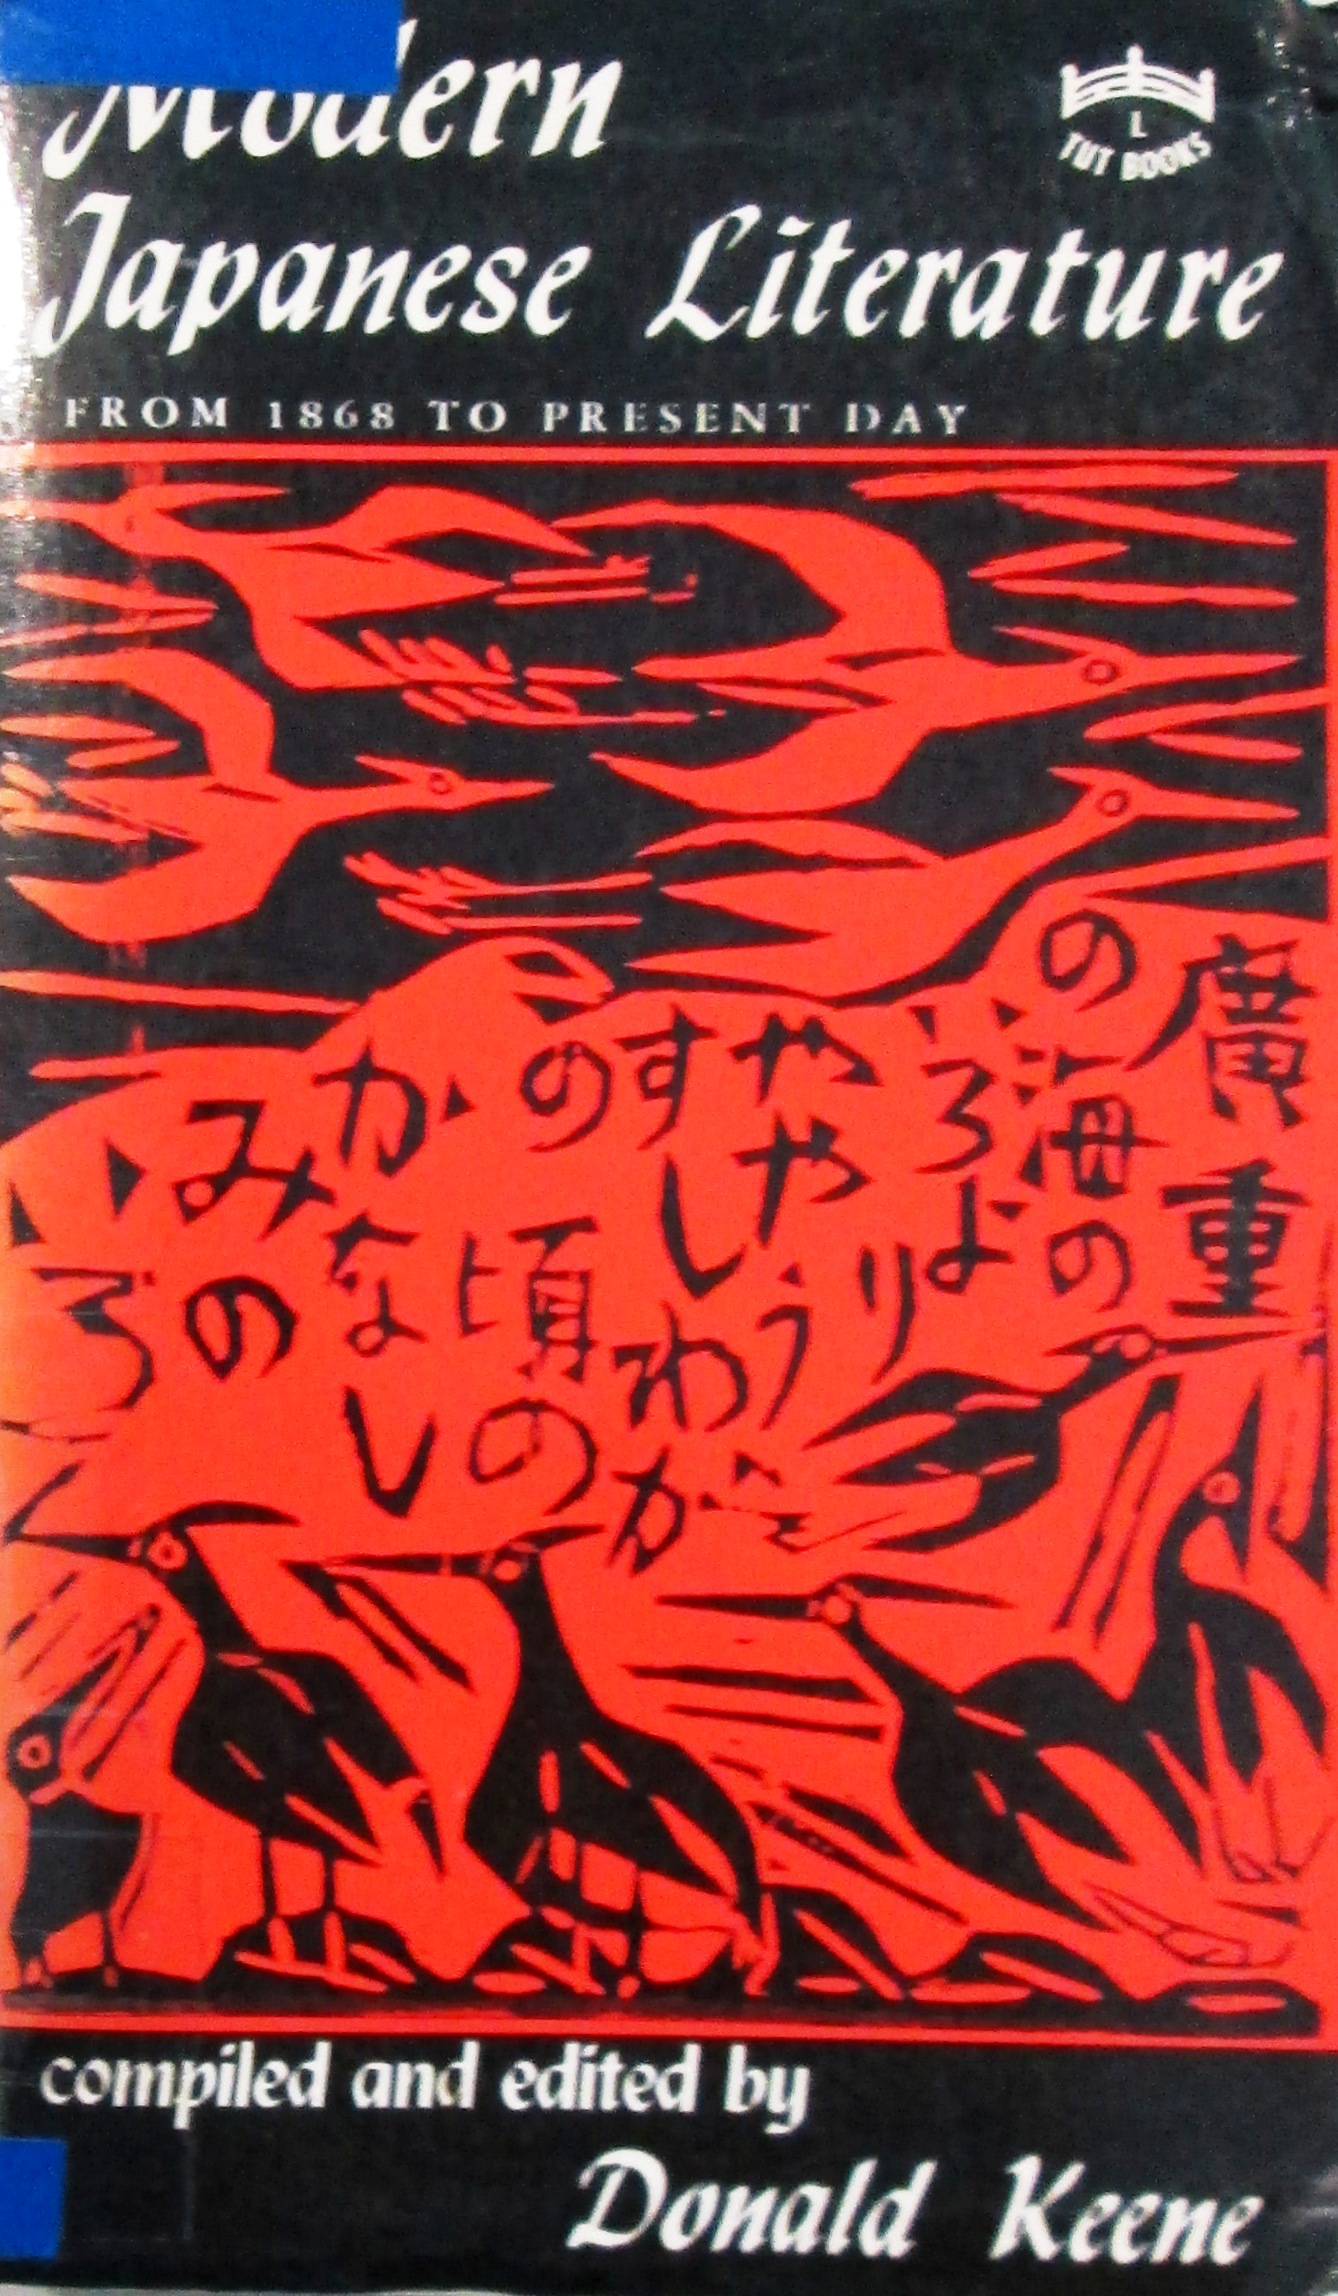 Modern
Japanese Literature
L
TUT BOOKS
FROM 1868 TO PRESENT DAY
廣重
の海の
いろよ
り
ややう
すしわがこ
の頃の
かなし
みの
いろ
compiled and edited by
Donald Keene